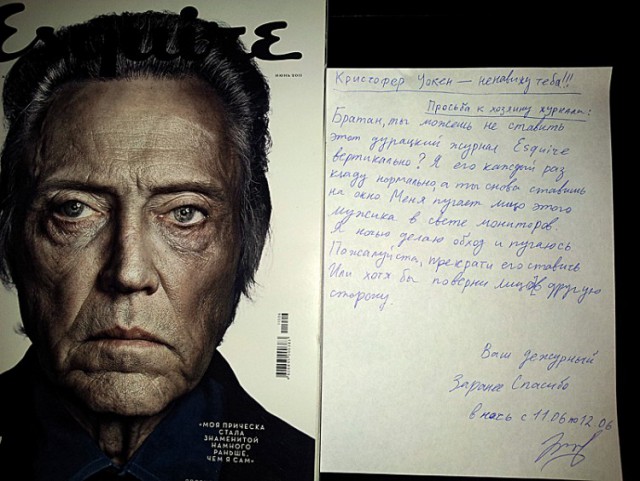 Esquire
ИЮНЬ 2011
«МОЯ ПРИЧЕСКА
СТАЛА
ЗНАМЕНИТОЙ
НАМНОГО
РАНЬШЕ,
ЧЕМ Я САМ»
Кристофер Уокен — ненавижу тебя!!!
Просьба к хозяину журнала:
Братан, ты можешь не ставить
этот дурацкий журнал Esquire
вертикально? Я его каждый раз
кладу нормально, а ты снова ставишь
на окно Меня пугает лицо этого
мужика в свете мониторов
Я ночью делаю обход и пугаюсь
Пожалуйста, прекрати его ставить
Или хотя бы поверни лицом в другую
сторону.
Ваш дежурный
Заранее Спасибо
в ночь с 11.06 по 12.06